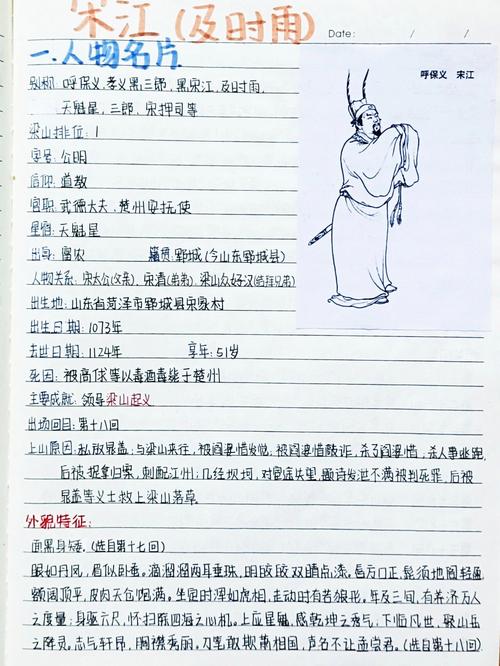 宋江(及时雨)
Date: / /
一.人物名片
呼保义 宋江
别称: 呼保义、孝义黑三郎、黑宋江、及时雨、
天魁星、三郎、宋押司等
梁山排位: 1
字号: 公明
信仰: 道教
官职: 武德大夫、楚州安抚使
星宿: 天魁星
出身: 富农 籍贯: 郓城(今山东郓城县)
人物关系: 宋太公(父亲)、宋清(弟弟)、梁山众好汉(结拜兄弟)
出生地: 山东省菏泽市郓城县宋家村
出生日期: 1073年
去世日期: 1124年 享年: 51岁
死因: 被高俅等以毒酒毒毙于楚州
主要成就: 领导梁山起义
出场回目: 第十八回
上山原因: 私放晁盖; 与梁山来往, 被阎婆惜发觉, 被阎婆惜敲诈, 杀了阎婆惜, 杀人事发跑,
后被捉拿归案, 刺配江州; 几经坝坷, 对宦途失望, 题诗发泄不满被判死罪, 后被
晁盖等义士救上梁山落草。
外貌特征:
面黑身矮。(选自第十七回)
眼如丹凤, 眉似卧蚕。滴溜溜两耳垂珠, 明皎皎双睛点漆。唇方口正, 髭须地阁轻盈
额阔顶平, 皮肉天仓饱满。坐定时浑如虎相, 走动时有若狼形。年及三旬, 有养济万人
之度量; 身躯六尺, 怀扫除四海之心机。上应星魁, 感乾坤之秀气; 下临凡世, 聚山岳
之降灵。志气轩昂, 胸襟秀丽。刀笔敢欺萧相国, 声名不让孟尝君。(选自第十八回)